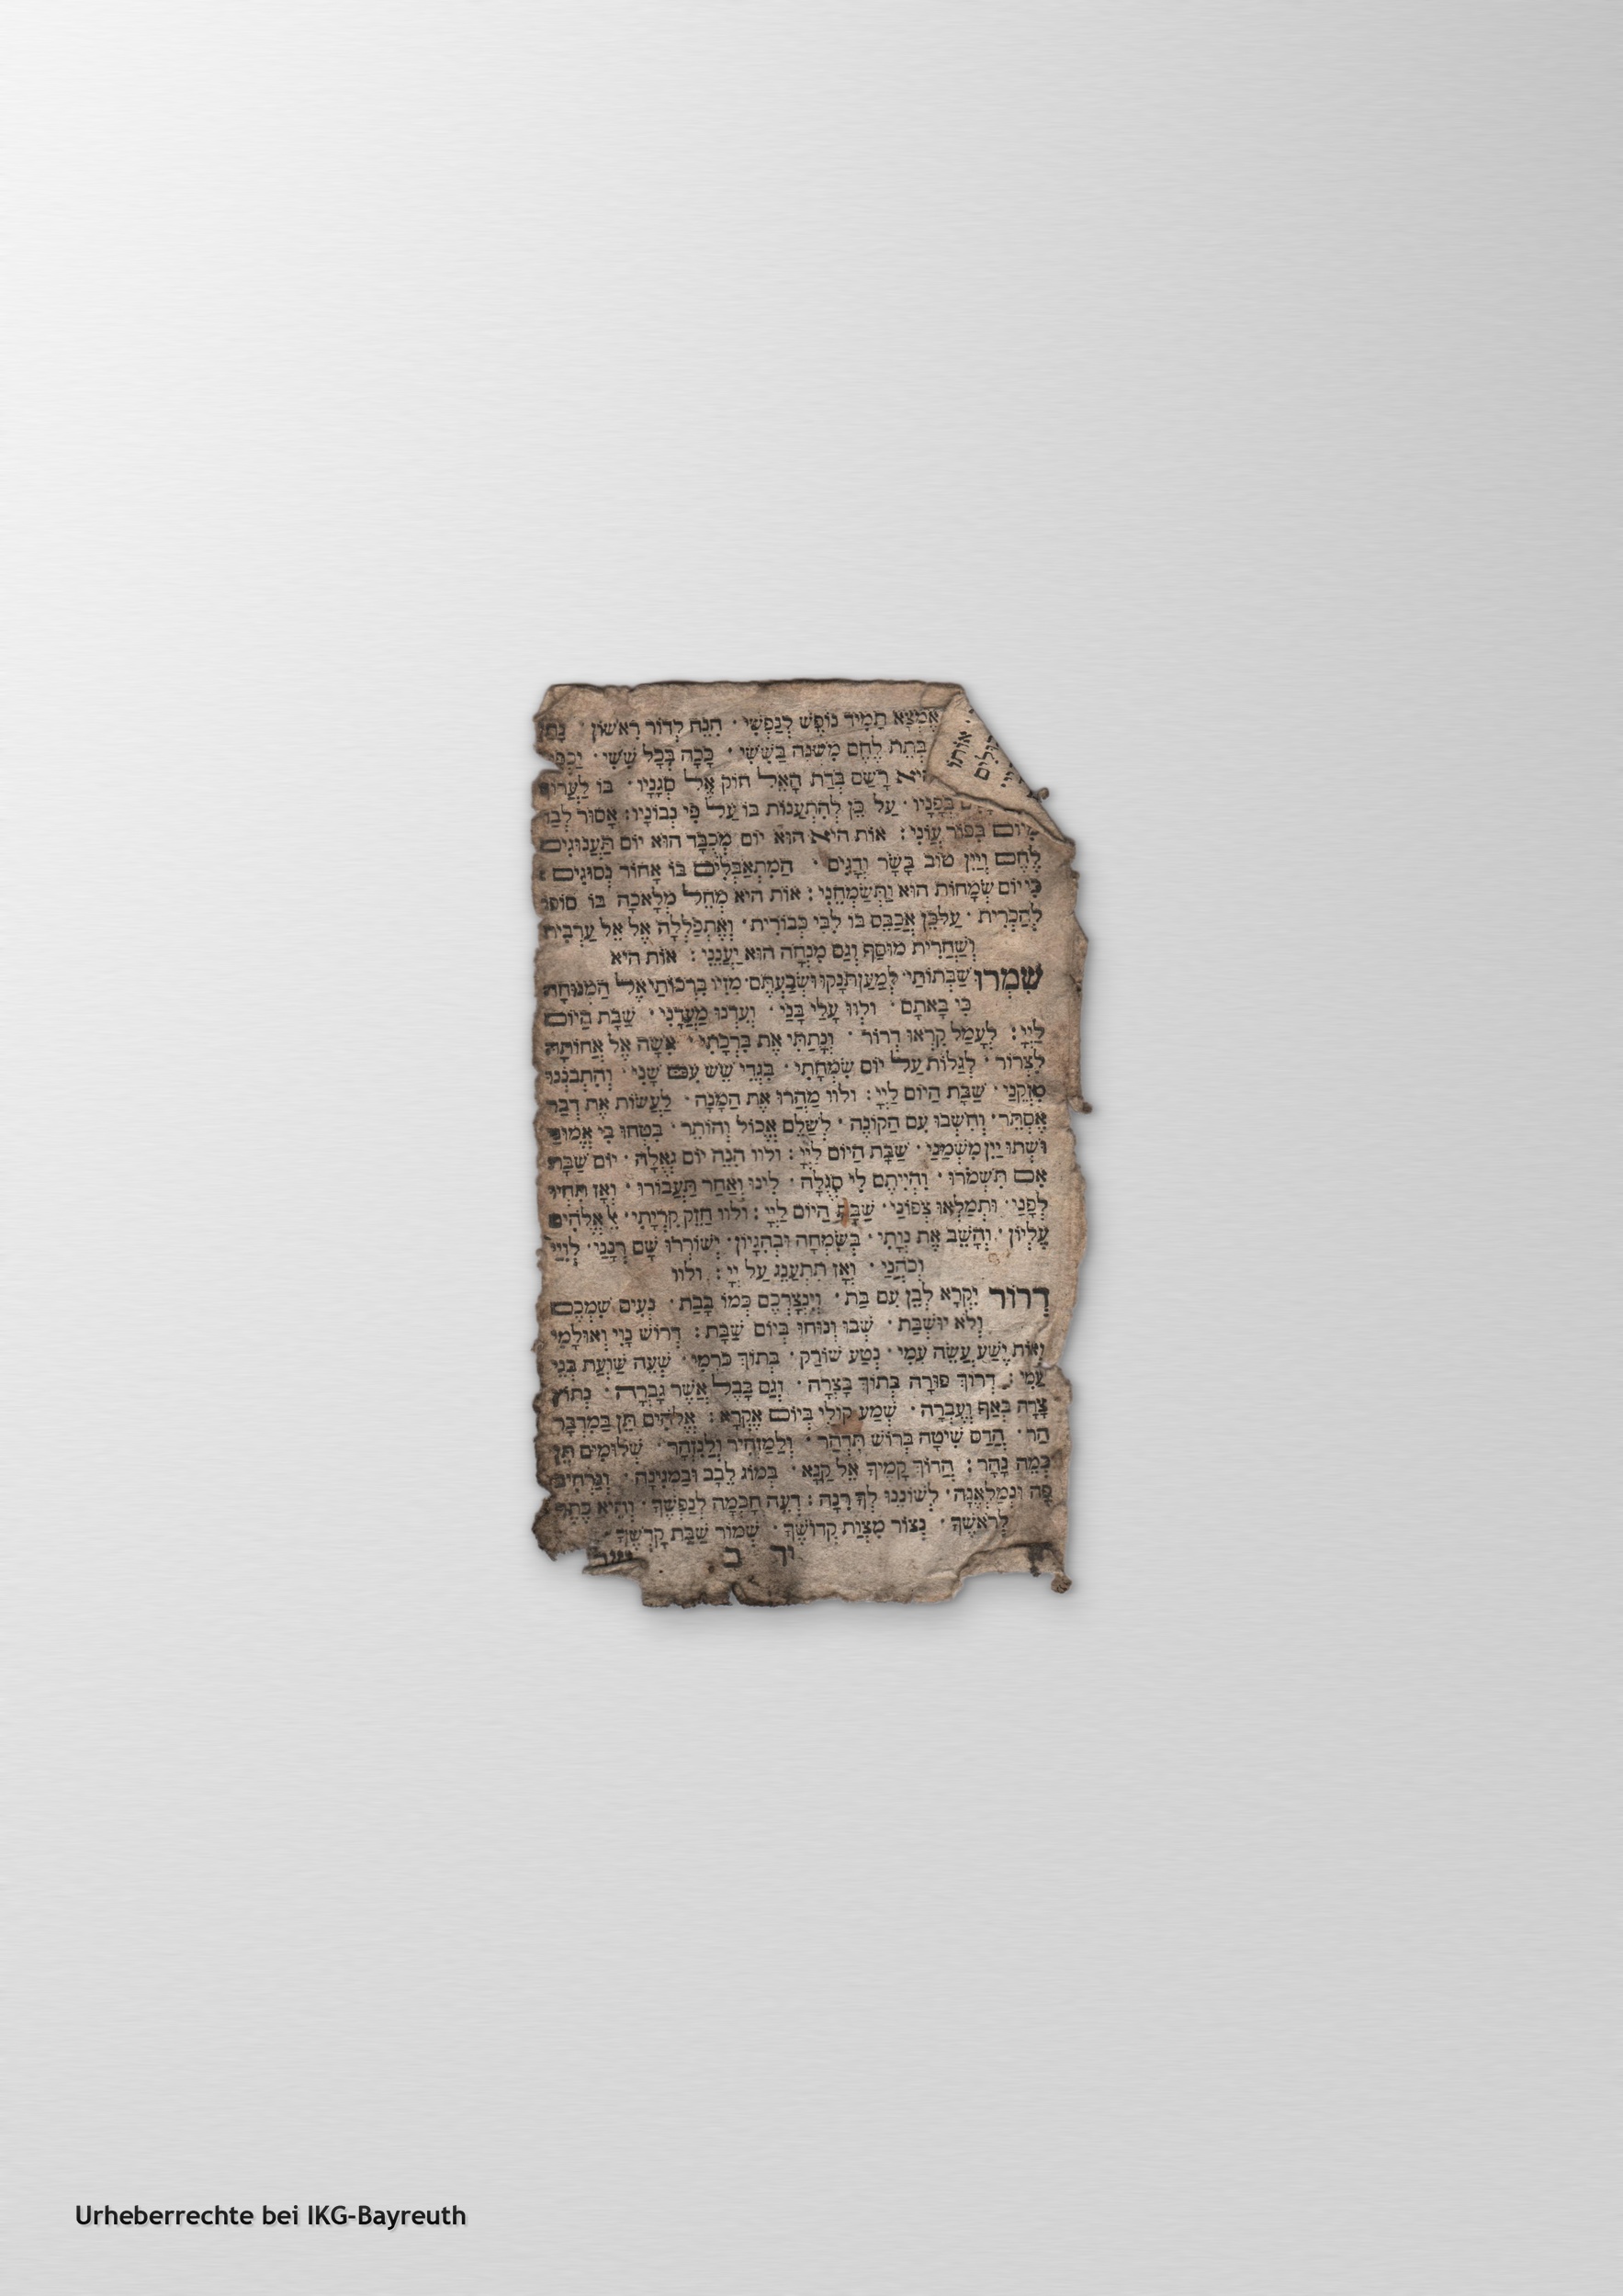 אֶמְצָא תָמִיד נוֹפֶשׁ לְנַפְשִׁי · הִנֵּה לְדוֹר רִאשׁוֹן · נָתַן
בְּתֵת לֶחֶם מִשְׁנֶה בַּשִּׁשִּׁי · כָּכָה בְּכָל שִׁשִּׁי ·
רָשַׁם בְּדַת הָאֵל חוֹק אֶל סְגָנָיו · בּוֹ לַעֲרוֹךְ
בְּפָנָיו · עַל כֵּן לְהִתְעַנּוֹת בּוֹ עַל פִּי נְבוֹנָיו : אָסוּר לְבַד
מִיּוֹם כִּפּוּר עֲוֹנִי : אוֹת הִיא הוּא יוֹם מְכֻבָּד הוּא יוֹם תַּעֲנוּגִים
לֶחֶם וְיַיִן טוֹב בָּשָׂר וְדָגִים · הַמִּתְאַבְּלִים בּוֹ אָחוֹר נְסוֹגִים :
כִּי יוֹם שְׂמָחוֹת הוּא וַתְּשַׂמְּחֵנִי : אוֹת הִיא מֵחֵל מְלָאכָה בּוֹ סוֹפוֹ
לְהַכְרִית · עַלכֵּן אֲכַבֵּס בּוֹ לִבִּי כְּבוֹרִית · וְאֶתְפַּלְלָה אֶל אֵל עַרְבִית
וְשַׁחֲרִית מוּסָף וְגַם מִנְחָה הוּא יַעֲנֵנִי : אוֹת הִיא
שִׁמְרוּ שַׁבְּתוֹתַי · לְמַעַן תִּנָקוּ וּשְׂבַעְתֶּם · מִזִּיו בִּרְכוֹתַי אֶל הַמְּנוּחָה
כִּי בָאתֶם · וּלְווּ עָלַי בָּנַי · וְעִדְנוּ מַעֲדָנִי · שַׁבָּת הַיּוֹם
לַיְיָ : לְעָמֵל קִרְאוּ דְרוֹר · וְנָתַתִּי אֶת בִּרְכָתִי · אִשָּׁה אֶל אֲחוֹתָהּ
לִצְרוֹר · לְגַלּוֹת עַל יוֹם שִׂמְחָתִי · בִּגְדֵי שֵׁשׁ עִם שָׁנִי · וְהִתְבּוֹנְנוּ
מִזְּקֵנַי · שַׁבָּת הַיּוֹם לַיְיָ : ולוו מַהֲרוּ אֶת הַמָּנֶה · לַעֲשׂוֹת אֶת דְּבַר
אֶסְתֵּר · וְחִשְׁבוּ עִם הַקּוֹנֶה · לְשַׁלֵּם אָכוֹל וְהוֹתֵר · בִּטְחוּ בִי אֱמוּנַי
וּשְׁתוּ יַיִן מִשְׁמַנַּי · שַׁבָּת הַיּוֹם לַיְיָ : ולוו הִנֵּה יוֹם גְּאֻלָּה · יוֹם שַׁבָּת
אִם תִּשְׁמֹרוּ · וִהְיִיתֶם לִי סְגֻלָּה · לִינוּ וְאַחַר תַּעֲבוֹרוּ · וְאָז תִּחְיוּ
לְפָנַי · וּתְמַלְאוּ צְפוּנַי · שַׁבָּת הַיּוֹם לַיְיָ : ולוו חַזֵּק קִרְיָתִי · אֵל אֱלֹהִים
עֶלְיוֹן · וְהָשֵׁב אֶת נְוָתִי · בְּשִׂמְחָה וּבְהִגָּיוֹן · יְשׁוֹרְרוּ שָׁם רְנָנַי · לְוִיַּי
וְכֹהֲנַי · וְאָז תִּתְעַנַּג עַל יְיָ : ולוו
דְּרוֹר יִקְרָא לְבֵן עִם בַּת · וְיִנְצָרְכֶם כְּמוֹ בָבַת · נְעִים שִׁמְכֶם
וְלֹא יוּשְׁבַּת · שְׁבוּ וְנוּחוּ בְּיוֹם שַׁבָּת : דְּרוֹשׁ נָוִי וְאוּלָמִי
וְאוֹת יֶשַׁע עֲשֵׂה עִמִּי · נְטַע שׂוֹרֵק · בְּתוֹךְ כַּרְמִי · שְׁעֵה שַׁוְעַת בְּנֵי
עַמִּי : דְּרוֹךְ פּוּרָה בְּתוֹךְ בָּצְרָה · וְגַם בָּבֶל אֲשֶׁר גָּבְרָה · נְתוֹץ
צָרַי בְּאַף וְעֶבְרָה · שְׁמַע קוֹלִי בְּיוֹם אֶקְרָא : אֱלֹהִים תֵּן בַּמִּדְבָּר
הַר · הֲדַס שִׁיטָה בְּרוֹשׁ תִּדְהָר · וְלַמַּזְהִיר וְלַנִּזְהָר · שְׁלוֹמִים תֵּן
כְּמֵי נָהָר : הֲדוֹךְ קָמֶיךָ אֵל קַנָּא · בְּמוֹג לֵבָב וּבַמְּגִנָּה · וְנַרְחִיב
פֶּה וּנְמַלְאֶנָּה · לְשׁוֹנֵנוּ לְךָ רִנָּה : דְּעֵה חָכְמָה לְנַפְשֶׁךָ · וְהִיא כֶתֶר
לְרֹאשֶׁךָ · נְצוֹר מִצְוַת קְדוֹשֶׁךָ · שְׁמוֹר שַׁבַּת קָדְשֶׁךָ ·
Urheberrechte bei IKG-Bayreuth